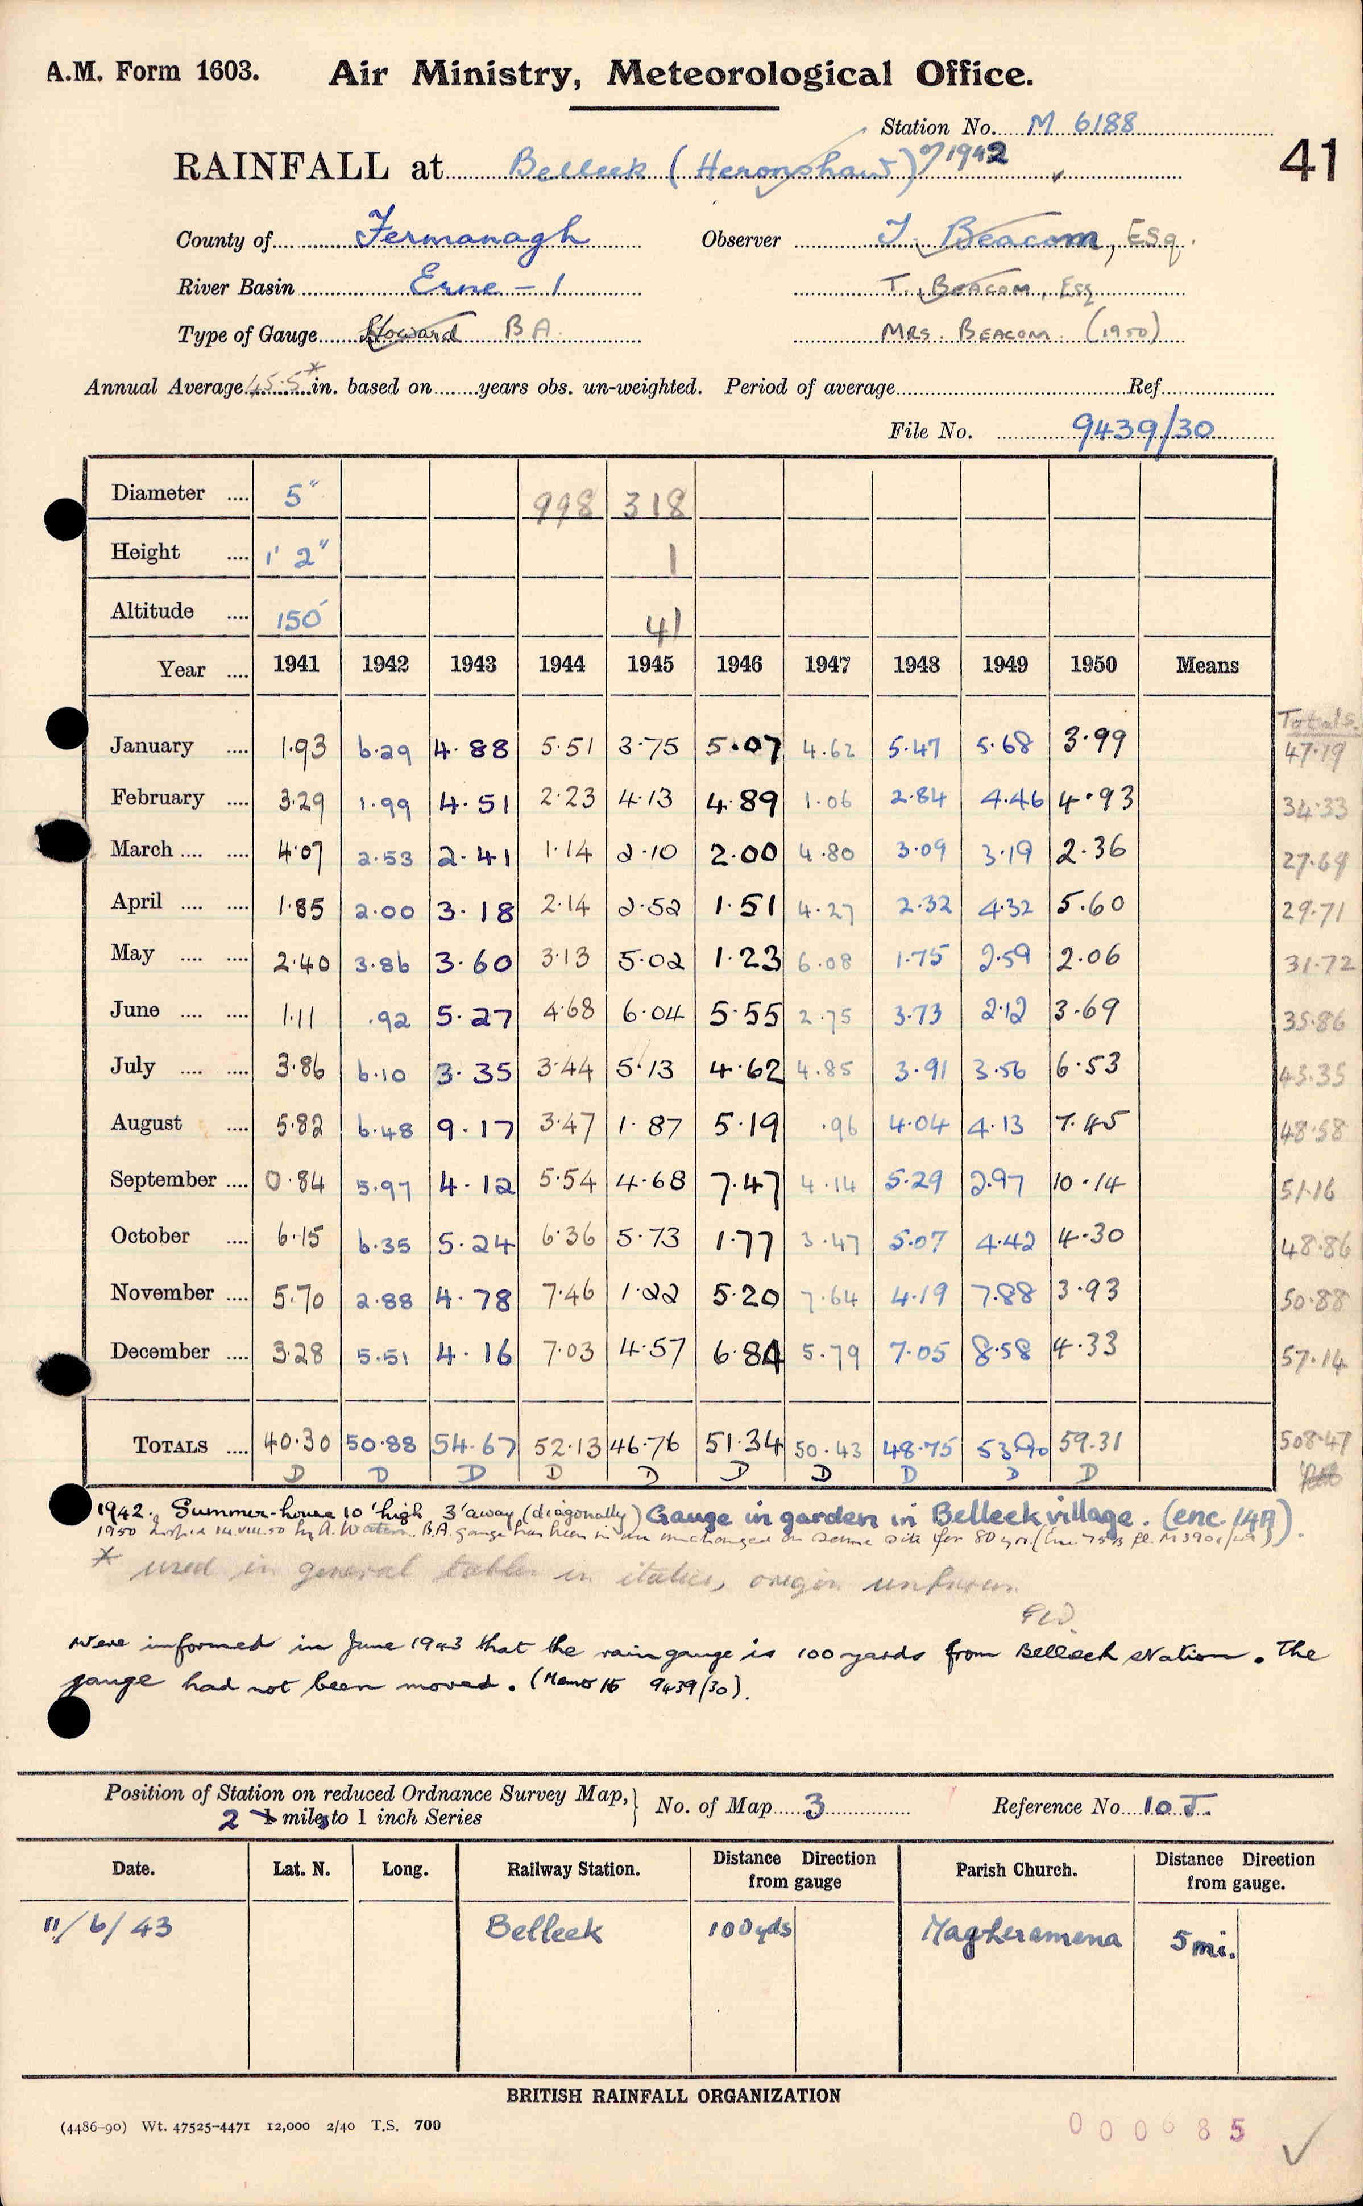 A.M. Form 1603. Air Ministry, Meteorological Office.
Station No. M 6188
RAINFALL at Belleek (Heronshaw) 1942
41
County of Fermanagh Observer T. Beacom, Esq.
River Basin Erne - 1 T. Beacom, Esq
Type of Gauge Howard B A. Mrs. Beacom. (1950)
Annual Average 45.5* in. based on years obs. un-weighted. Period of average Ref
File No. 9439/30
Diameter .... 5" 998 318
Height .... 1' 2" 1
Altitude .... 150' 41
Year .... 1941 1942 1943 1944 1945 1946 1947 1948 1949 1950 Means
Totals.
January .... 1.93 6.29 4.88 5.51 3.75 5.07 4.62 5.47 5.68 3.99 47.19
February .... 3.29 1.99 4.51 2.23 4.13 4.89 1.06 2.84 4.46 4.93 34.33
March .... .... 4.07 2.53 2.41 1.14 2.10 2.00 4.80 3.09 3.19 2.36 27.69
April .... .... 1.85 2.00 3.18 2.14 2.52 1.51 4.27 2.32 4.32 5.60 29.71
May .... .... 2.40 3.86 3.60 3.13 5.02 1.23 6.08 1.75 2.59 2.06 31.72
June .... .... 1.11 .92 5.27 4.68 6.04 5.55 2.75 3.73 2.12 3.69 35.86
July .... .... 3.86 6.10 3.35 3.44 5.13 4.62 4.85 3.91 3.56 6.53 45.35
August .... 5.82 6.48 9.17 3.47 1.87 5.19 .96 4.04 4.13 7.45 48.58
September .... 0.84 5.97 4.12 5.54 4.68 7.47 4.14 5.29 2.97 10.14 51.16
October .... 6.15 6.35 5.24 6.36 5.73 1.77 3.47 5.07 4.42 4.30 48.86
November .... 5.70 2.88 4.78 7.46 1.22 5.20 7.64 4.19 7.88 3.93 50.88
December .... 3.28 5.51 4.16 7.03 4.57 6.84 5.79 7.05 8.58 4.33 57.14
Totals .... 40.30 50.88 54.67 52.13 46.76 51.34 50.43 48.75 53.90 59.31 508.47
D D D D D D D D D D
1942. Summer-house 10' high 3' away (diagonally) Gauge in garden in Belleek village. (enc. 14A).
1950 B.A. gauge has been in use unchanged on same site for 80 yrs.
* used in general tables in italics, origin unknown
Were informed in June 1943 that the raingauge is 100 yards from Belleek station. The
gauge had not been moved. (Memo 15 9439/30).
Position of Station on reduced Ordnance Survey Map, No. of Map 3 Reference No. 10 J.
2 miles to 1 inch Series
Date. Lat. N. Long. Railway Station. Distance Direction from gauge Parish Church. Distance Direction from gauge.
11/6/43 Belleek 100 yds Magheramena 5 mi.
BRITISH RAINFALL ORGANIZATION
(4486-90) Wt. 47525-4471 12,000 2/40 T.S. 700
000685